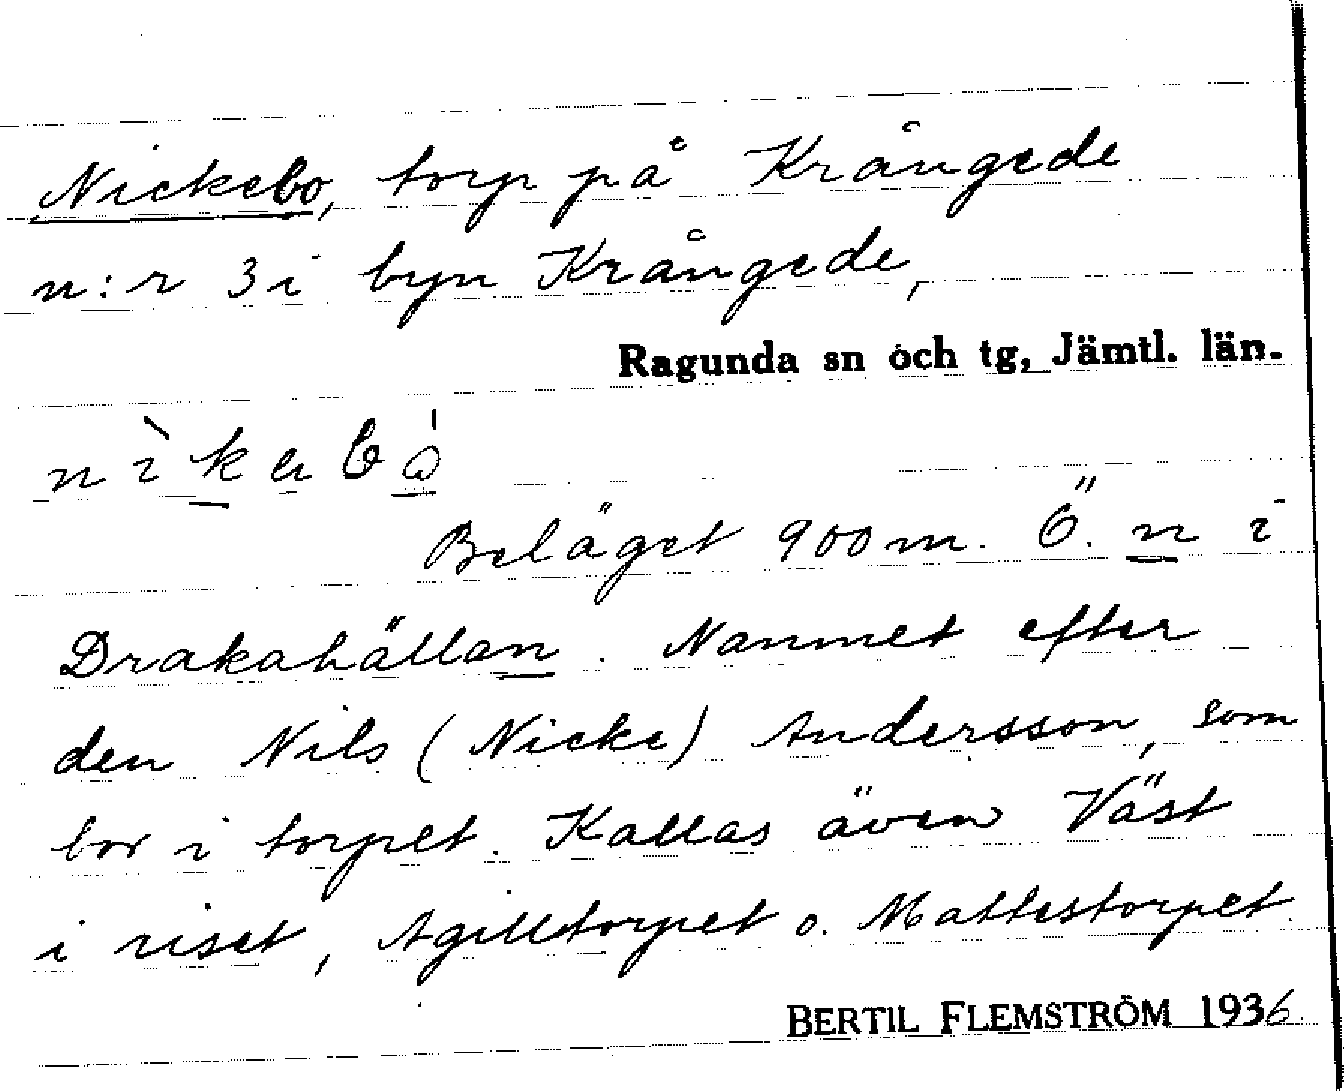 Nickebo, torp på Krångede
n:r 3 i byn Krångede,
Ragunda sn och tg, Jämtl. län.
Beläget 900 m. Ö. n i
Drakahällan. Namnet efter
den Nils (Nicke) Andersson, som
bor i torpet. Kallas även Väst
i riset, Agilltorpet o. Mattestorpet.
BERTIL FLEMSTRÖM 1936.